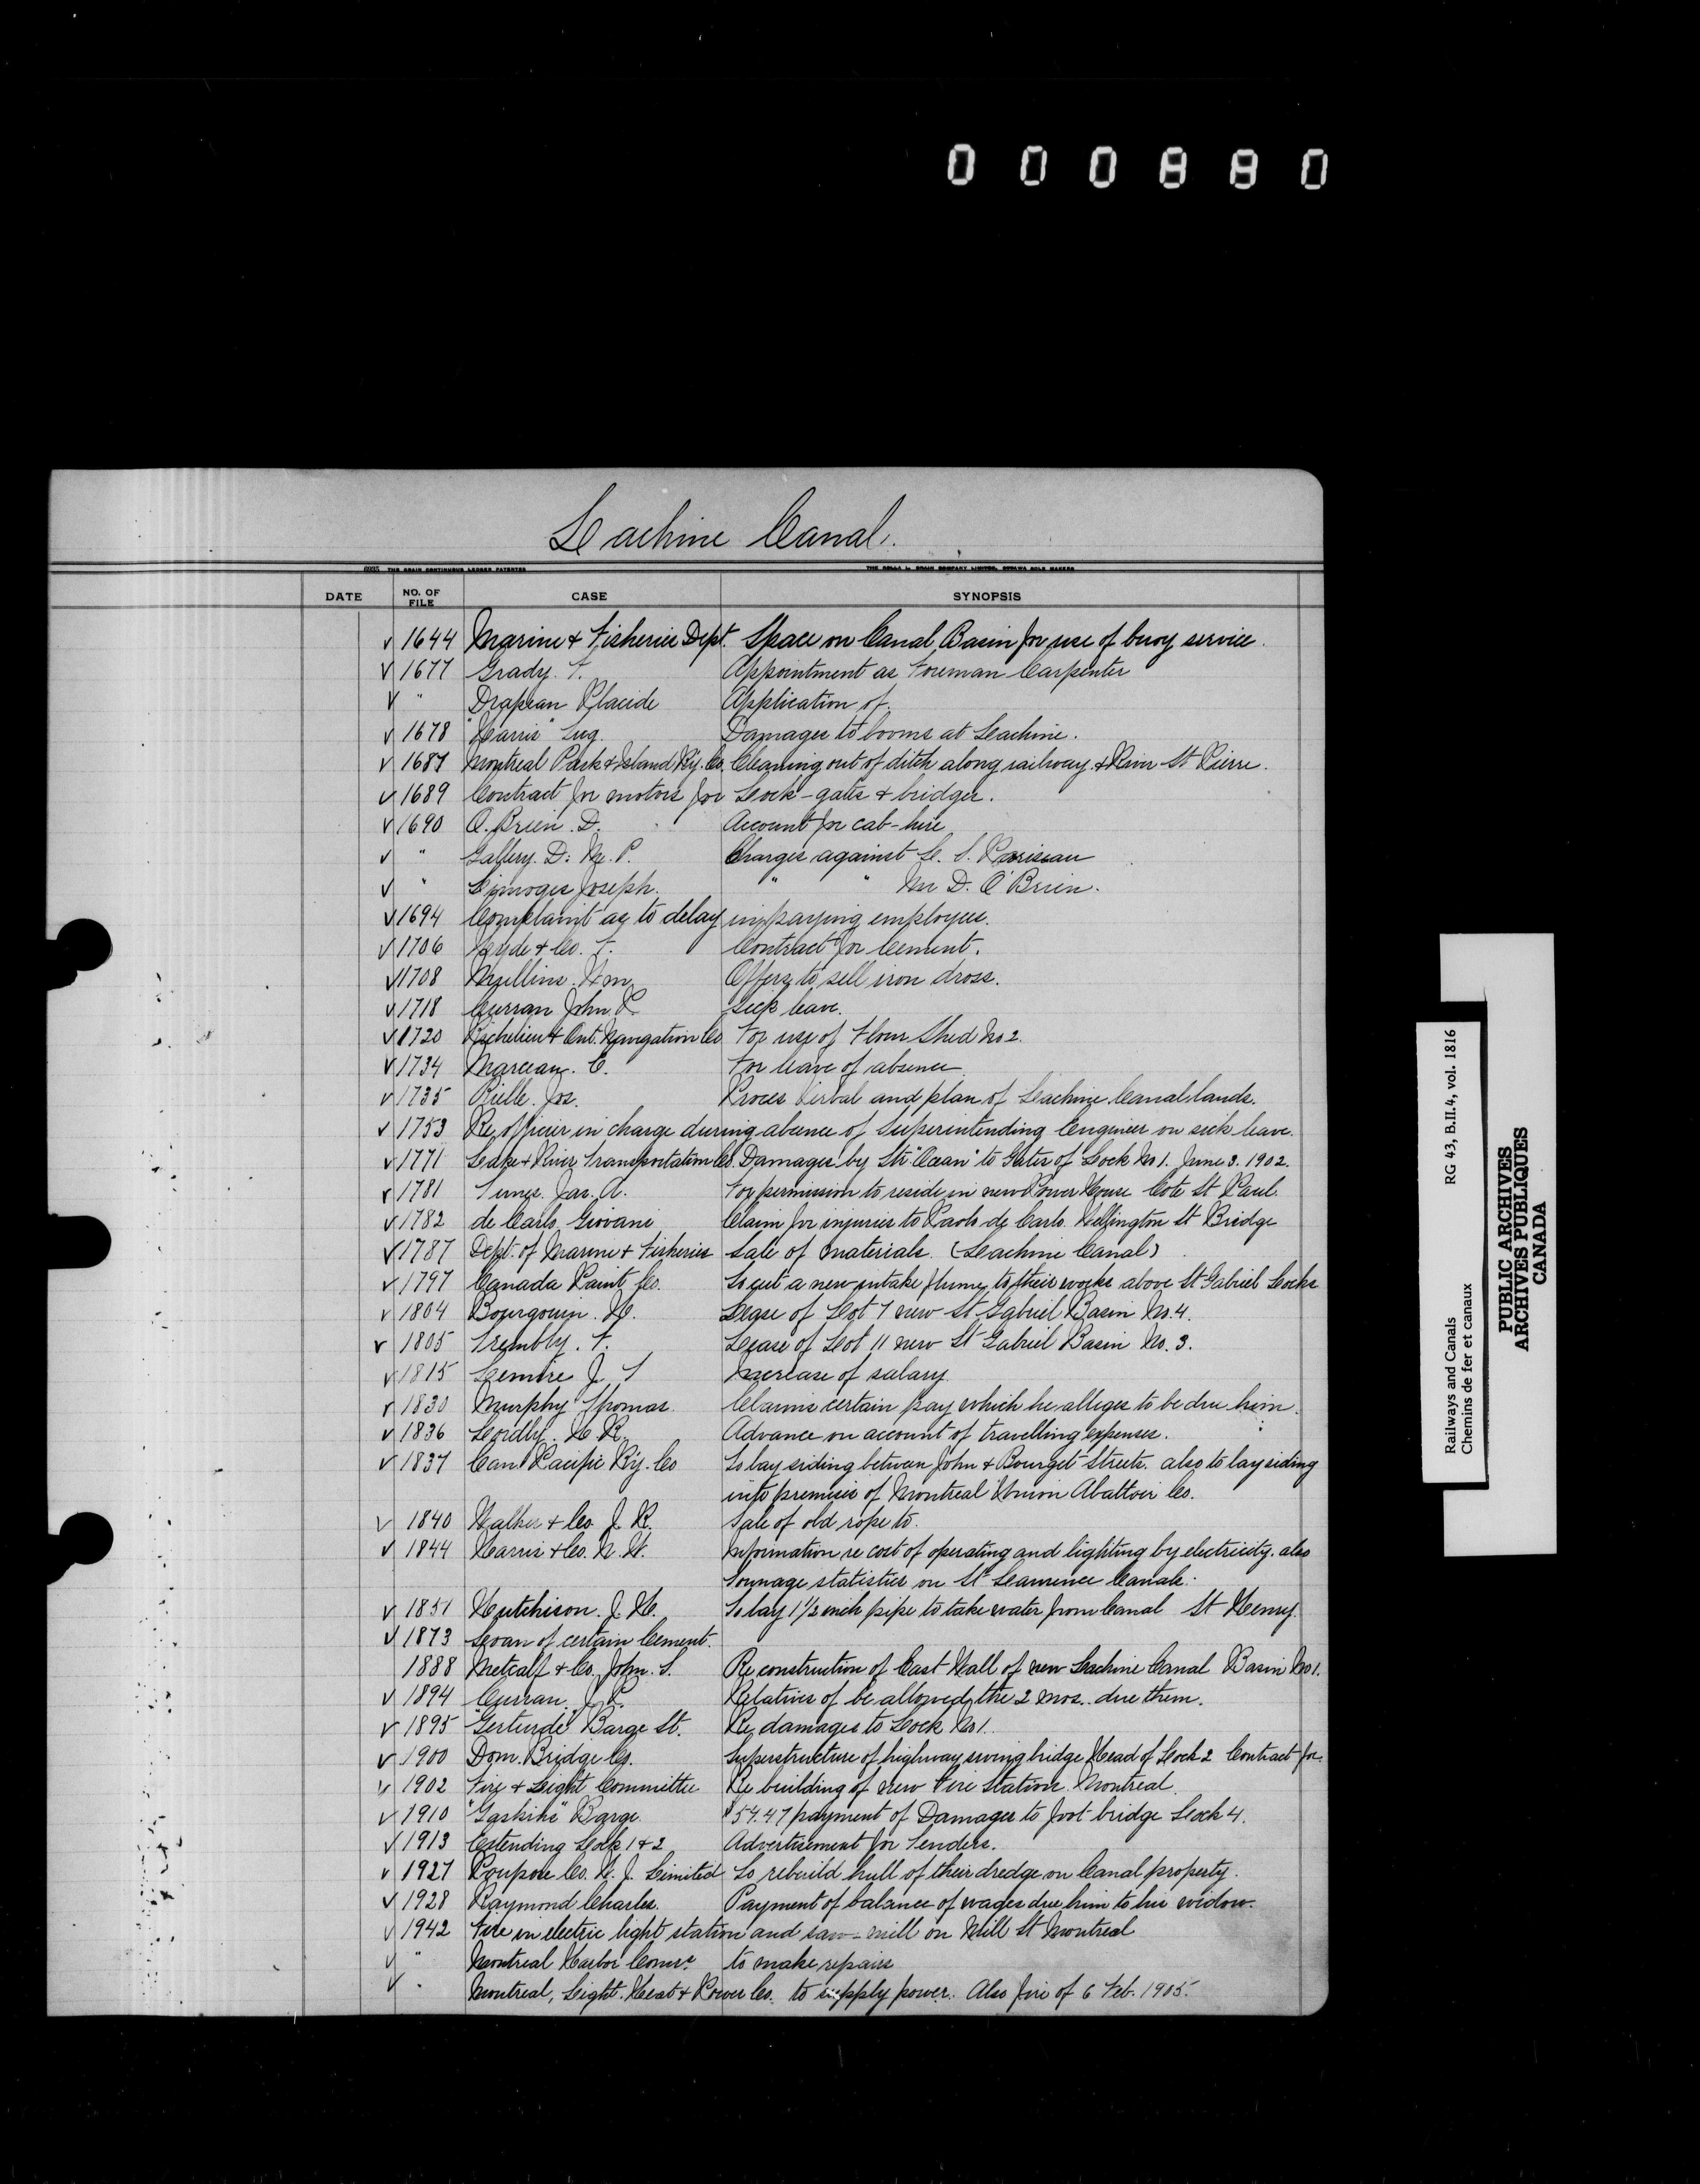 000880
Lachine Canal.
6935 THE CRAIN CONTINUOUS LEDGER PATENTED THE ROLLA L. CRAIN COMPANY LIMITED, OTTAWA SOLE MAKERS
DATE NO. OF FILE CASE SYNOPSIS
v 1644 Marine & Fisheries Dept. Space on Canal Basin for use of buoy service.
v 1677 Grady. F. Appointment as Foreman Carpenter
v " Drapeau Placide Application of.
v 1678 "Harris" Tug. Damages to booms at Lachine.
v 1687 Montreal Park & Island Ry. Co. Cleaning out of ditch along railway & River St Pierre.
v 1689 Contract for motors for Lock-gates & bridges.
v 1690 O.Brien. D. Account for cab-hire
v " Gallery. D. M. P. Charges against Parizeau
v " Limoges Joseph. " " Mr D. O'Brien.
v 1694 Complaint as to delay in paying employees.
v 1706 Hyde & Co. F. Contract for Cement.
v 1708 Mullins. Wm. Offers to sell iron dross.
v 1718 Curran John P. Sick leave.
v 1720 Richelieu & Ont. Navigation Co For use of Flour Shed No 2.
v 1734 Marceau. E. For leave of absence
v 1735 Rielle. Jos. Proces Verbal and plan of Lachine Canal lands.
v 1753 Re officer in charge during absence of Superintending Engineer on sick leave.
v 1771 Lake & River Transportation Co. Damages by Str "Ocean" to Gates of Lock No 1. June 3. 1902.
v 1781 Jas. A. For permission to reside in new Power House Cote St Paul.
v 1782 de Carlo Giovani Claim for injuries to Paolo de Carlo. Wellington St Bridge
v 1787 Dept. of Marine & Fisheries Sale of materials. (Lachine Canal)
v 1797 Canada Paint Co. To cut a new intake flume to their works above St Gabriel Locks
v 1804 Bourgouin. H. Lease of Lot 7 new St Gabriel Basin No. 4.
v 1805 Trembly. F. Lease of Lot 11 new St Gabriel Basin No. 3.
v 1815 Lemire J. Increase of salary
v 1830 Murphy Thomas. Claims certain pay which he alleges to be due him.
v 1836 Lordly. H R. Advance on account of travelling expenses.
v 1837 Can Pacific Ry. Co To lay siding between John & Bourget Streets. also to lay siding
into premises of Montreal Union Abattoir Co.
v 1840 Walker & Co. J. R. Sale of old rope to.
v 1844 Harris & Co. N. W. Information re cost of operating and lighting by electricity. also
Tonnage statistics on St Lawrence Canals.
v 1851 Hutchison. J. H. To lay 1½ inch pipe to take water from Canal St Henry.
v 1873 Loan of certain Cement.
1888 Metcalf & Co. John. S. Re construction of East Wall of new Lachine Canal Basin No 1.
v 1894 Curran. J. P. Relatives of be allowed the 2 mos. due them.
v 1895 "Gertrude" Barge St. Re damages to Lock No 1.
v 1900 Dom. Bridge Co. Superstructure of highway swing bridge Head of Lock 2 Contract for.
v 1902 Fire & Light Committee Re building of new Fire Station. Montreal
v 1910 "Gaskin" Barge. $54.47 payment of Damages to foot-bridge Lock 4.
v 1913 Extending Lock 1 & 2 Advertisement for Tenders.
v 1927 Poupore Co. W. J. Limited To rebuild hull of their dredge on Canal property.
v 1928 Raymond Charles. Payment of balance of wages due him to his widow.
v 1942 Fire in electric light station and saw-mill on Mill St Montreal
v " Montreal Harbor Comrs to make repairs
v " Montreal, Light. Heat & Power Co. to supply power. Also fire of 6 Feb. 1905.
Railways and Canals RG 43, B.II.4, vol. 1816
Chemins de fer et canaux
PUBLIC ARCHIVES
ARCHIVES PUBLIQUES
CANADA